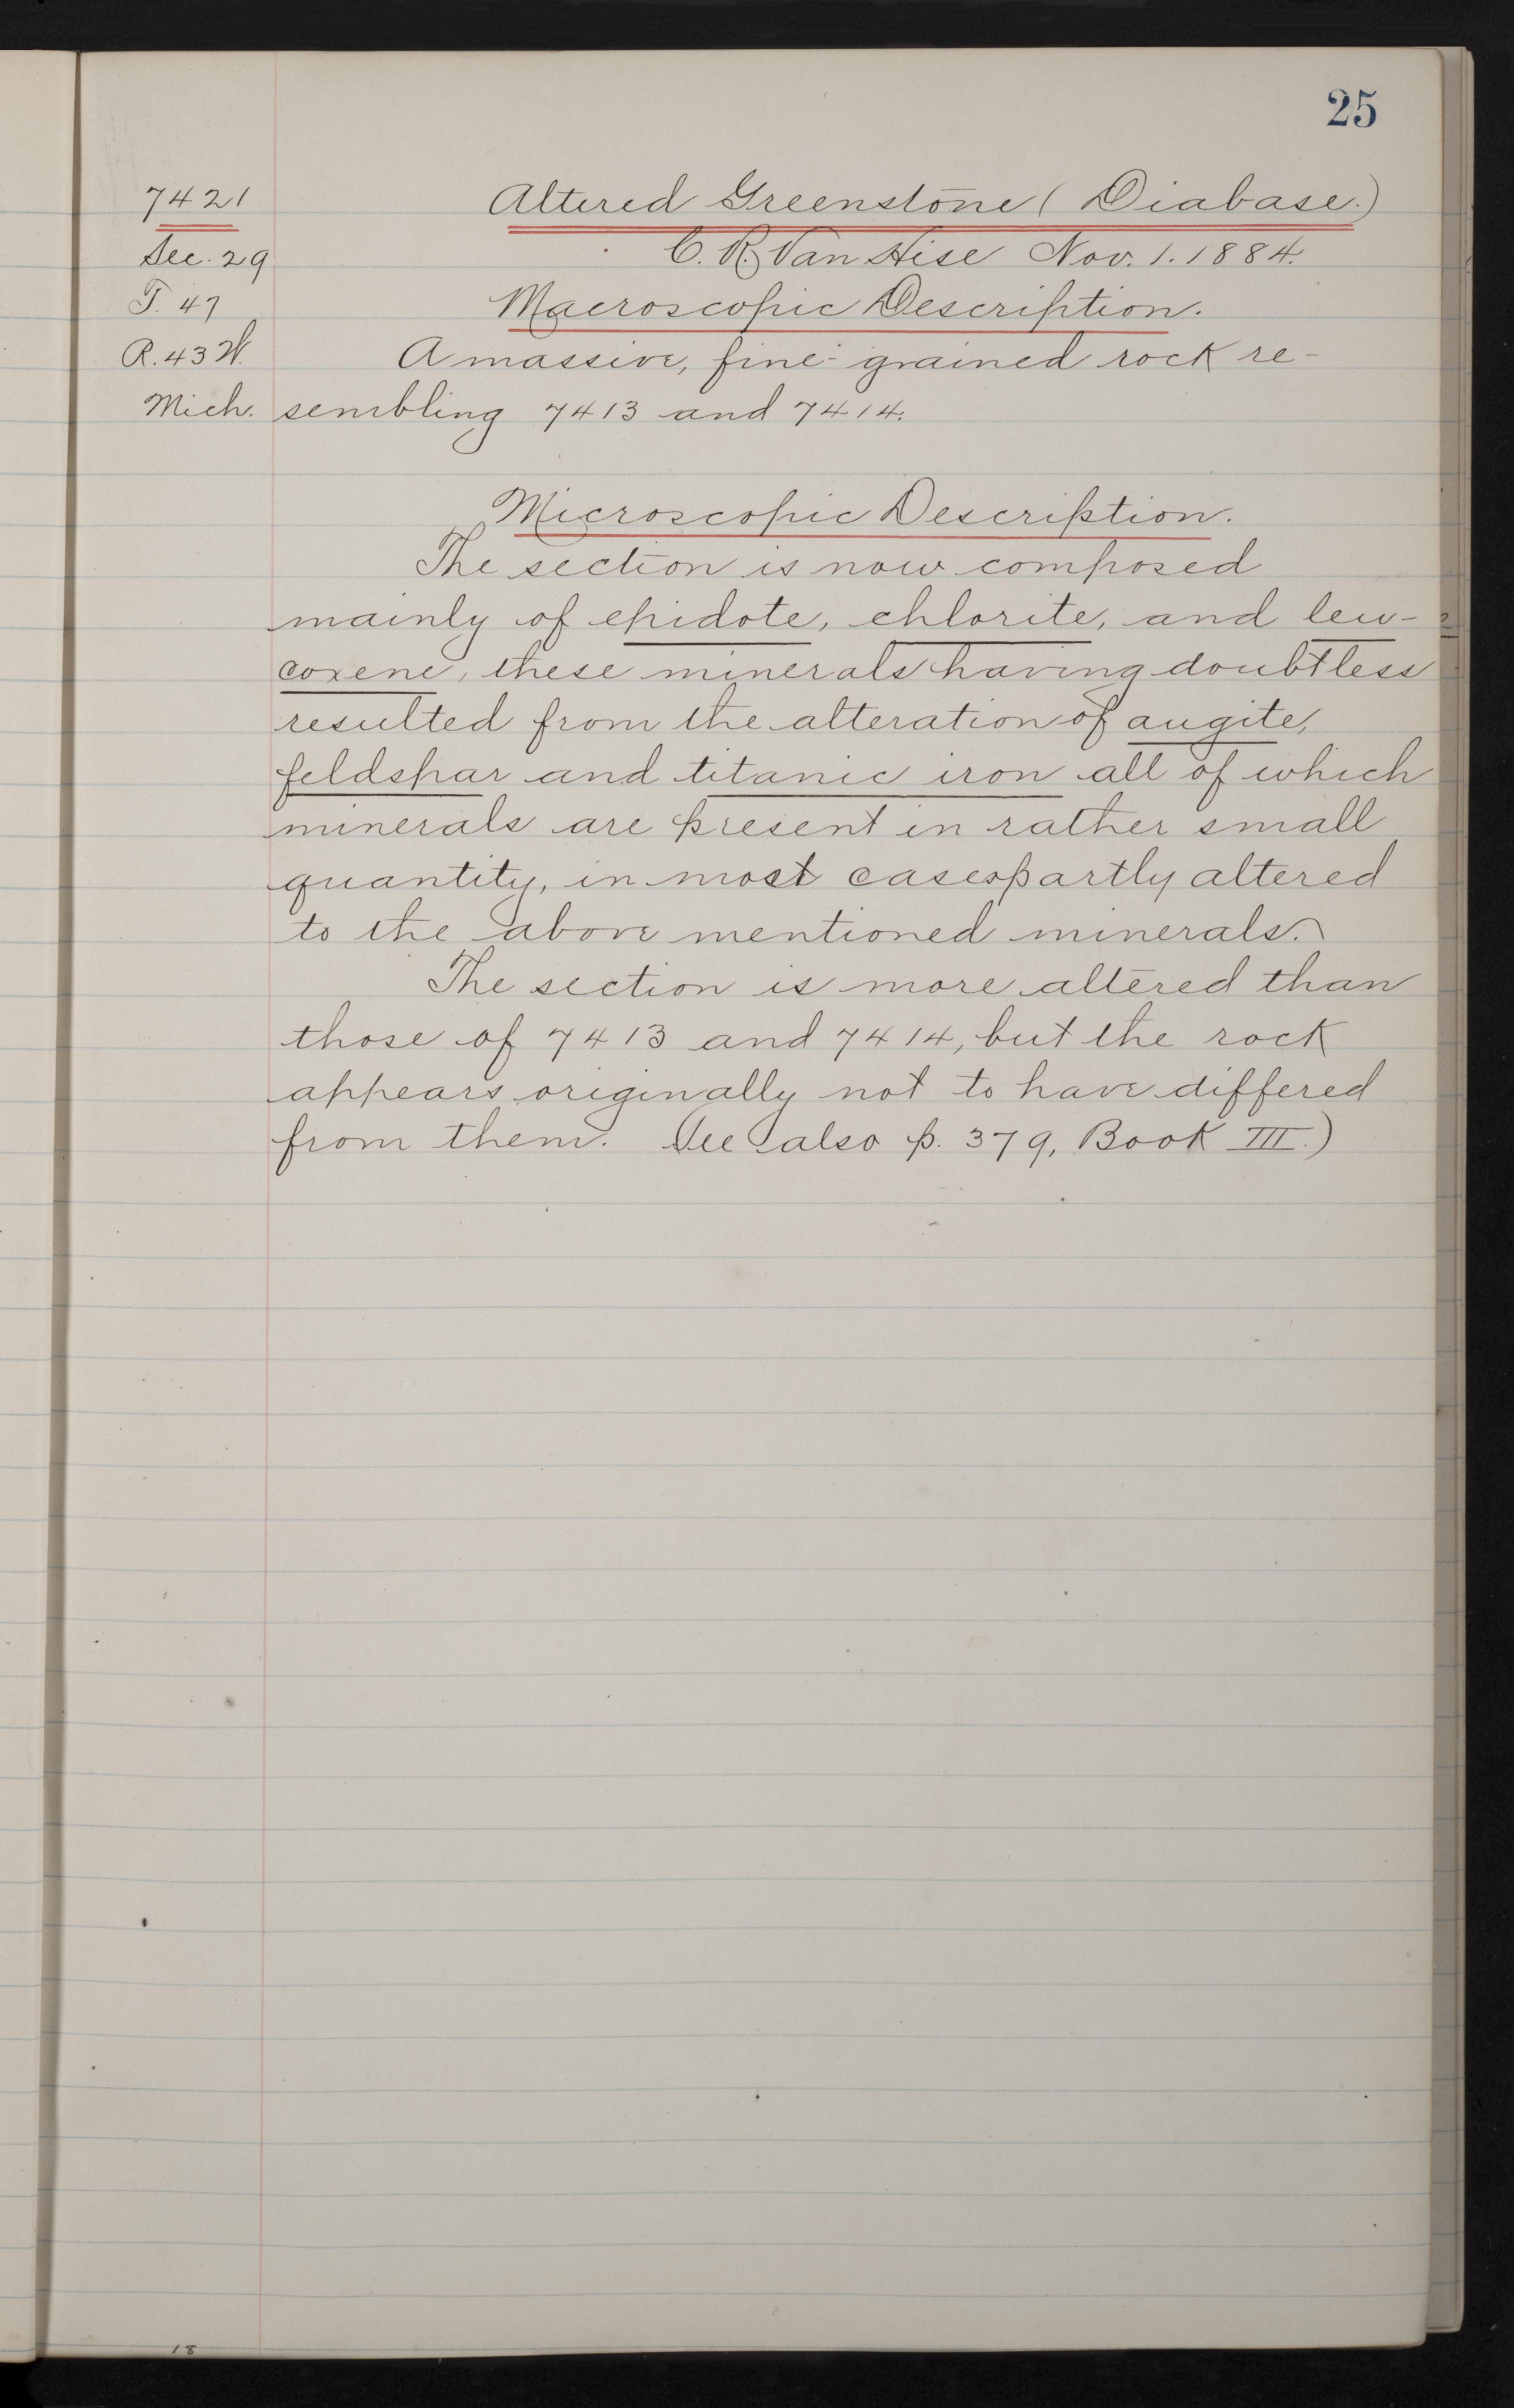 25
7421 Altered Greenstone (Diabase.)
Sec. 29 C. R. Van Hise Nov. 1. 1884.
T. 47 Macroscopic Description.
R. 43 W. A massive, fine-grained rock re-
Mich. sembling 7413 and 7414.
Microscopic Description.
The section is now composed
mainly of epidote, chlorite, and leu-
coxene, these minerals having doubtless
resulted from the alteration of augite,
feldspar and titanic iron all of which
minerals are present in rather small
quantity, in most cases partly altered
to the above mentioned minerals.
The section is more altered than
those of 7413 and 7414, but the rock
appears originally not to have differed
from them. See also p. 379, Book III.)
18